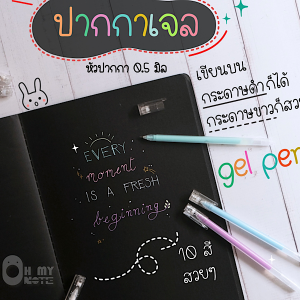 ปากกาเจล
หัวปากกา 0.5 มิล
เขียนบน
กระดาษดำ ก็ได้
กระดาษขาวก็สวย
EVERY
moment
IS A FRESH
beginning
gel pen
10 สี
สวยๆ
OH MY
NOTE